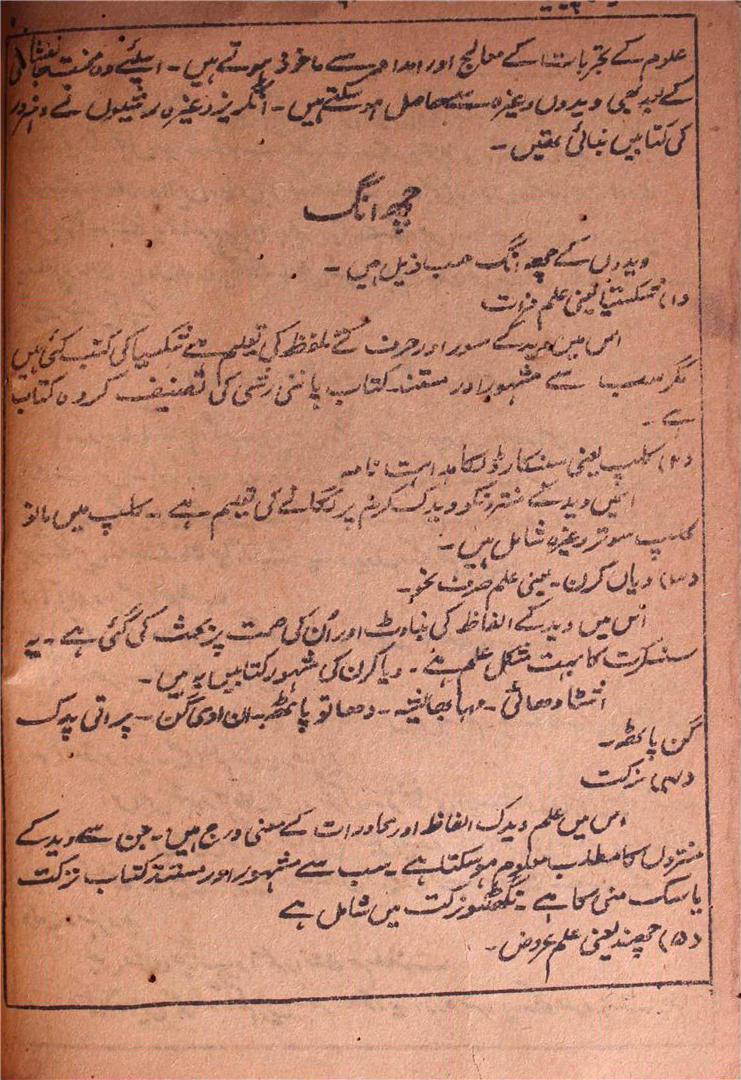 علوم کے تجربات کے معالج اور امداد سے ماخوذ ہوتے ہیں۔ اسلئے وہ محنت جانفشانی
کے بعد بھی ویدوں وغیرہ سے حاصل ہو سکتے ہیں۔ انگریز وغیرہ رشیوں نے
کی کتابیں بنائی تھیں۔
چھ انگ
ویدوں کے چھ انگ حسب ذیل ہیں۔
(۱) شکشا یعنی علم قرات
اس میں وید کے سور اور حرف کے تلفظ کی تعلیم ہے شکسیا کی کتب کئی ہیں
مگر سب سے مشہور اور مستند کتاب پاننی رشی کی تصنیف کردہ کتاب
ہے۔
(۲) کلپ یعنی سنسکاروں کا ہدایت نامہ
اسمیں وید کے منتروں کو ویدک کرم پر لگانے کی تعلیم ہے۔ کلپ میں مانو
کلپ سوتر وغیرہ شامل ہیں۔
(۳) ویاں کرن۔ یعنی علم صرف نحو۔
اس میں وید کے الفاظ کی بناوٹ اور اُن کی صحت پر بحث کی گئی ہے۔ یہ
سنسکرت کا بہت مشکل علم ہے۔ ویاکرن کی مشہور کتابیں یہ ہیں۔
اشٹادھائی۔ مہابھاشیہ۔ دھاتو پاٹھ۔ ان ادی گن۔ پراتی پدک
گن پاٹھ۔
(۴) نرکت
اس میں علم ویدک الفاظ اور محاورات کے معنی درج ہیں۔ جن سے وید کے
منتروں کا مطلب معلوم ہو سکتا ہے۔ سب سے مشہور اور مستند کتاب نرکت
یاسک منی کا ہے۔ نگھنٹو نرکت میں شامل ہے
(۵) چھند یعنی علم عروض۔